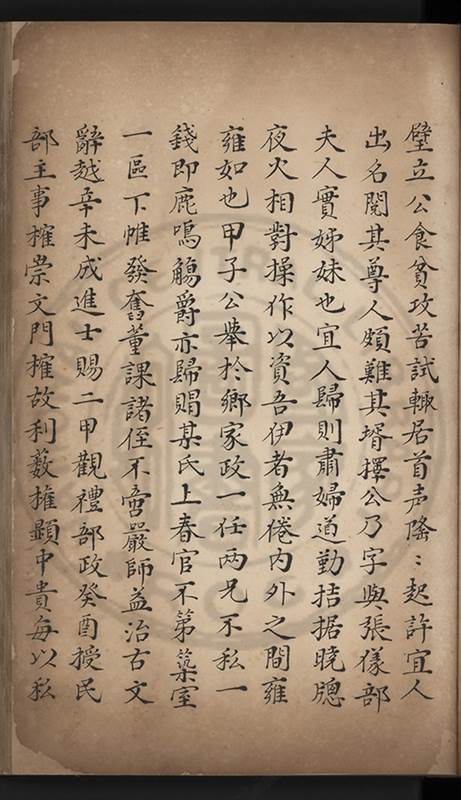 壁立公食貧攻苦試輙居首声隆〻起許宜人
出名閥其尊人頗難其壻擇公乃字與張儀部
夫人實姊妹也宜人歸則肅婦道勤拮据曉牕
夜火相對操作以資吾伊者無倦内外之間雍
雍如也甲子公舉於鄉家政一任两兄不私一
錢即鹿鳴觴爵亦歸賵某氏上春官不第築室
一區下帷發奮董課諸侄不啻嚴師益治古文
辭越辛未成進士賜二甲觀禮部政癸酉授民
部主事榷崇文門榷故利薮権顯中貴每以私